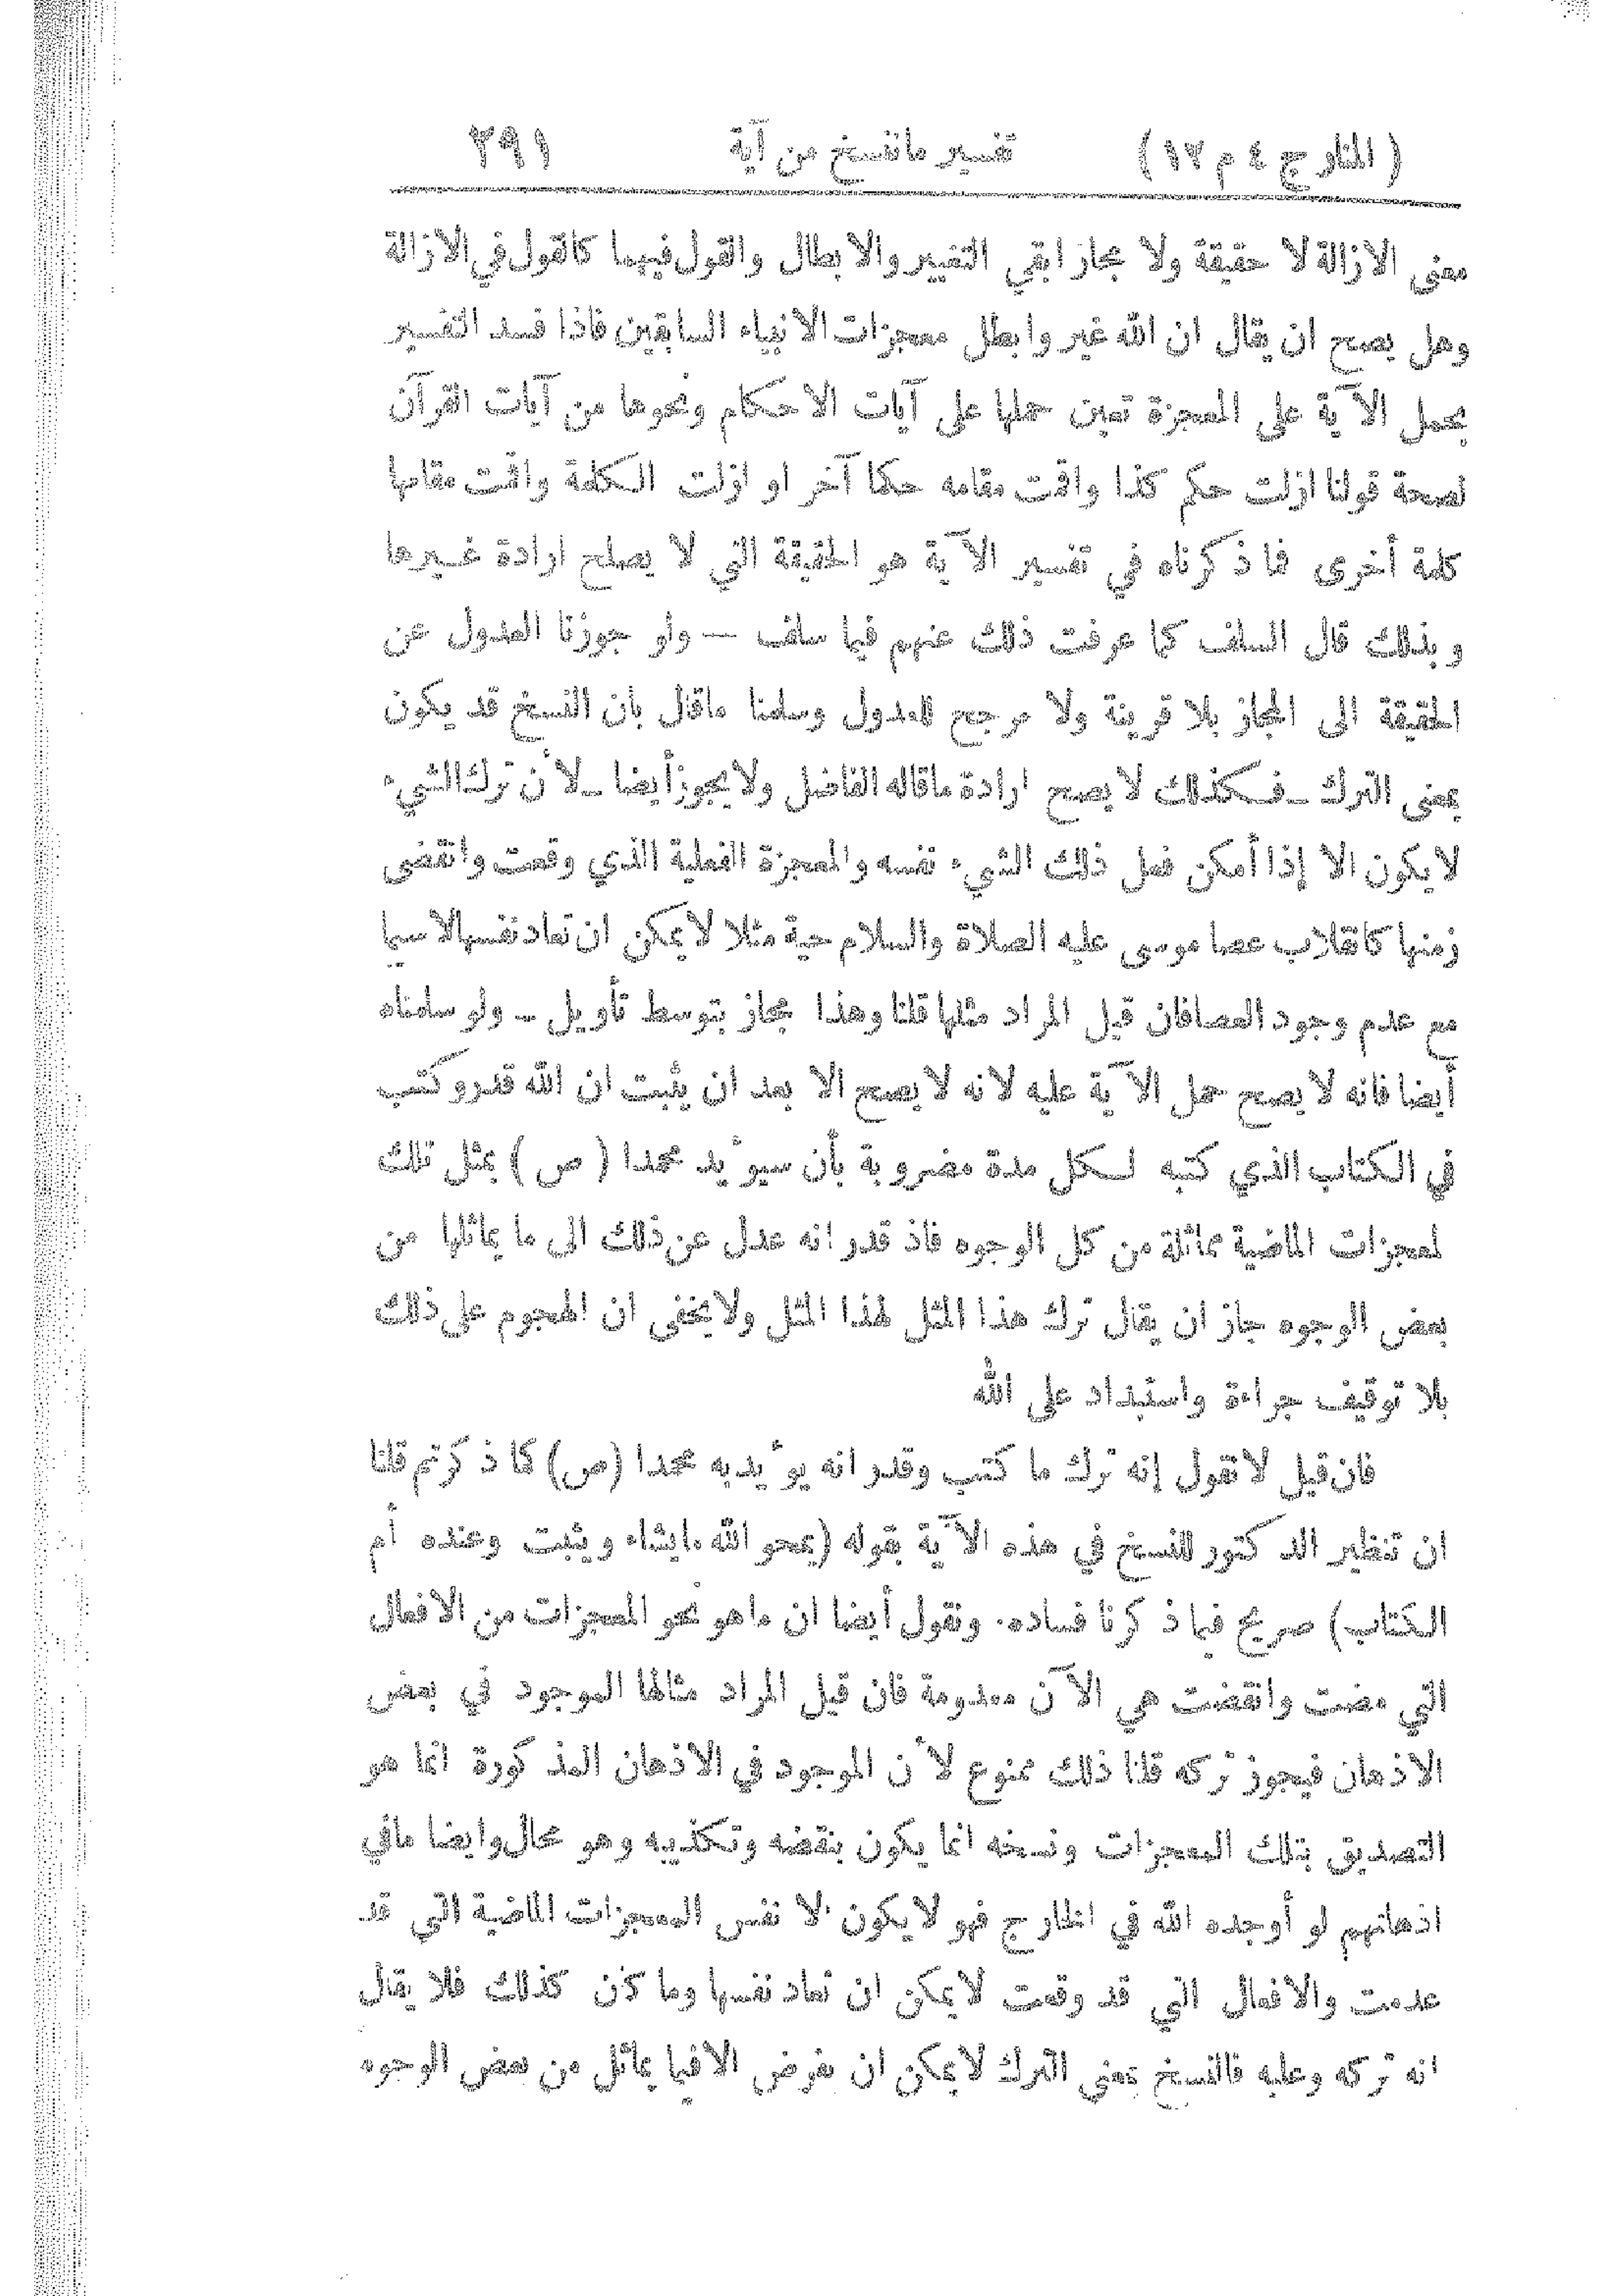 (المنار ج ٤ م ١٢) تفسير ماننسخ من آية ٢٩١
معنى الازالة لا حقيقة ولا مجاز ابقي التغيير والابطال والقول فيهما كالقول في الازالة
وهل يصح ان يقال ان الله غير وابطل معجزات الانبياء السابقين فاذا فسد التفسير
بحمل الآية على المعجزة تعين حملها على آيات الاحكام ونحوها من آيات القرآن
لصحة قولنا ازلت حكم كذا واقمت مقامه حكما آخر او ازلت الكلمة واقمت مقامها
كلمة أخرى فما ذكرناه في تفسير الآية هو الحقيقة التي لا يصلح ارادة غيرها
وبذلك قال السلف كما عرفت ذلك عنهم فيما سلف — ولو جوزنا العدول عن
الحقيقة الى المجاز بلا قرينة ولا مرجح للعدول وسلمنا ماقال بان النسخ قد يكون
بمعنى الترك ــ فكذلك لا يصح ارادة ماقاله الفاضل ولا يجوز أيضا ــ لأن ترك الشيء
لا يكون الا إذا أمكن فعل ذلك الشيء نفسه والمعجزة الفعلية الذي وقعت وانقضى
زمنها كانقلاب عصا موسى عليه الصلاة والسلام حية مثلا لا يمكن ان تعاد نفسها لاسيما
مع عدم وجود العصا فان قيل المراد مثلها قلنا وهذا مجاز بتوسط تأويل ــ ولو سلمناه
أيضا فانه لا يصح حمل الآية عليه لانه لا يصح الا بعد ان يثبت ان الله قدر وكتب
في الكتاب الذي كتبه لكل مدة مضروبة بأن سيؤيد محمدا (ص) بمثل تلك
لمعجزات الماضية مماثلة من كل الوجوه فاذ قدر انه عدل عن ذلك الى ما يماثلها من
بعض الوجوه جاز ان يقال ترك هذا المثل لهذا المثل ولا يخفى ان الهجوم على ذلك
بلا توقيف جراءة واستبداد على الله
فان قيل لا نقول إنه ترك ما كتب وقدر انه يؤيد به محمدا (ص) كما ذكرتم قلنا
ان تنظير الدكتور للنسخ في هذه الآية بقوله (يمحو الله مايشاء ويثبت وعنده أم
الكتاب) صريح فيما ذكرنا فساده. ونقول أيضا ان ماهو نحو المعجزات من الافعال
التي مضت وانقضت هي الآن معدومة فان قيل المراد مثالها الموجود في بعض
الاذهان فيجوز تركه قلنا ذلك ممنوع لأن الموجود في الاذهان المذكورة انما هو
التصديق بتلك المعجزات ونسخه انما يكون بنقضه وتكذيبه وهو محال وايضا مافي
اذهانهم لو أوجده الله في الخارج فهو لا يكون الا نفس المعجزات الماضية التي قد
عدمت والافعال التي قد وقعت لا يمكن ان تعاد نفسها وما كان كذلك فلا يقال
انه تركه وعليه فالنسخ بمعنى الترك لا يمكن ان يفرض الا فيما يماثل من بعض الوجوه